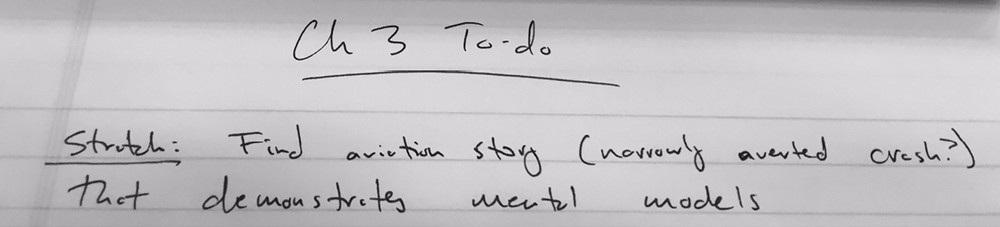 Ch 3 To-do
Stretch: Find aviation story (narrowly averted crash?)
that demonstrates mental models